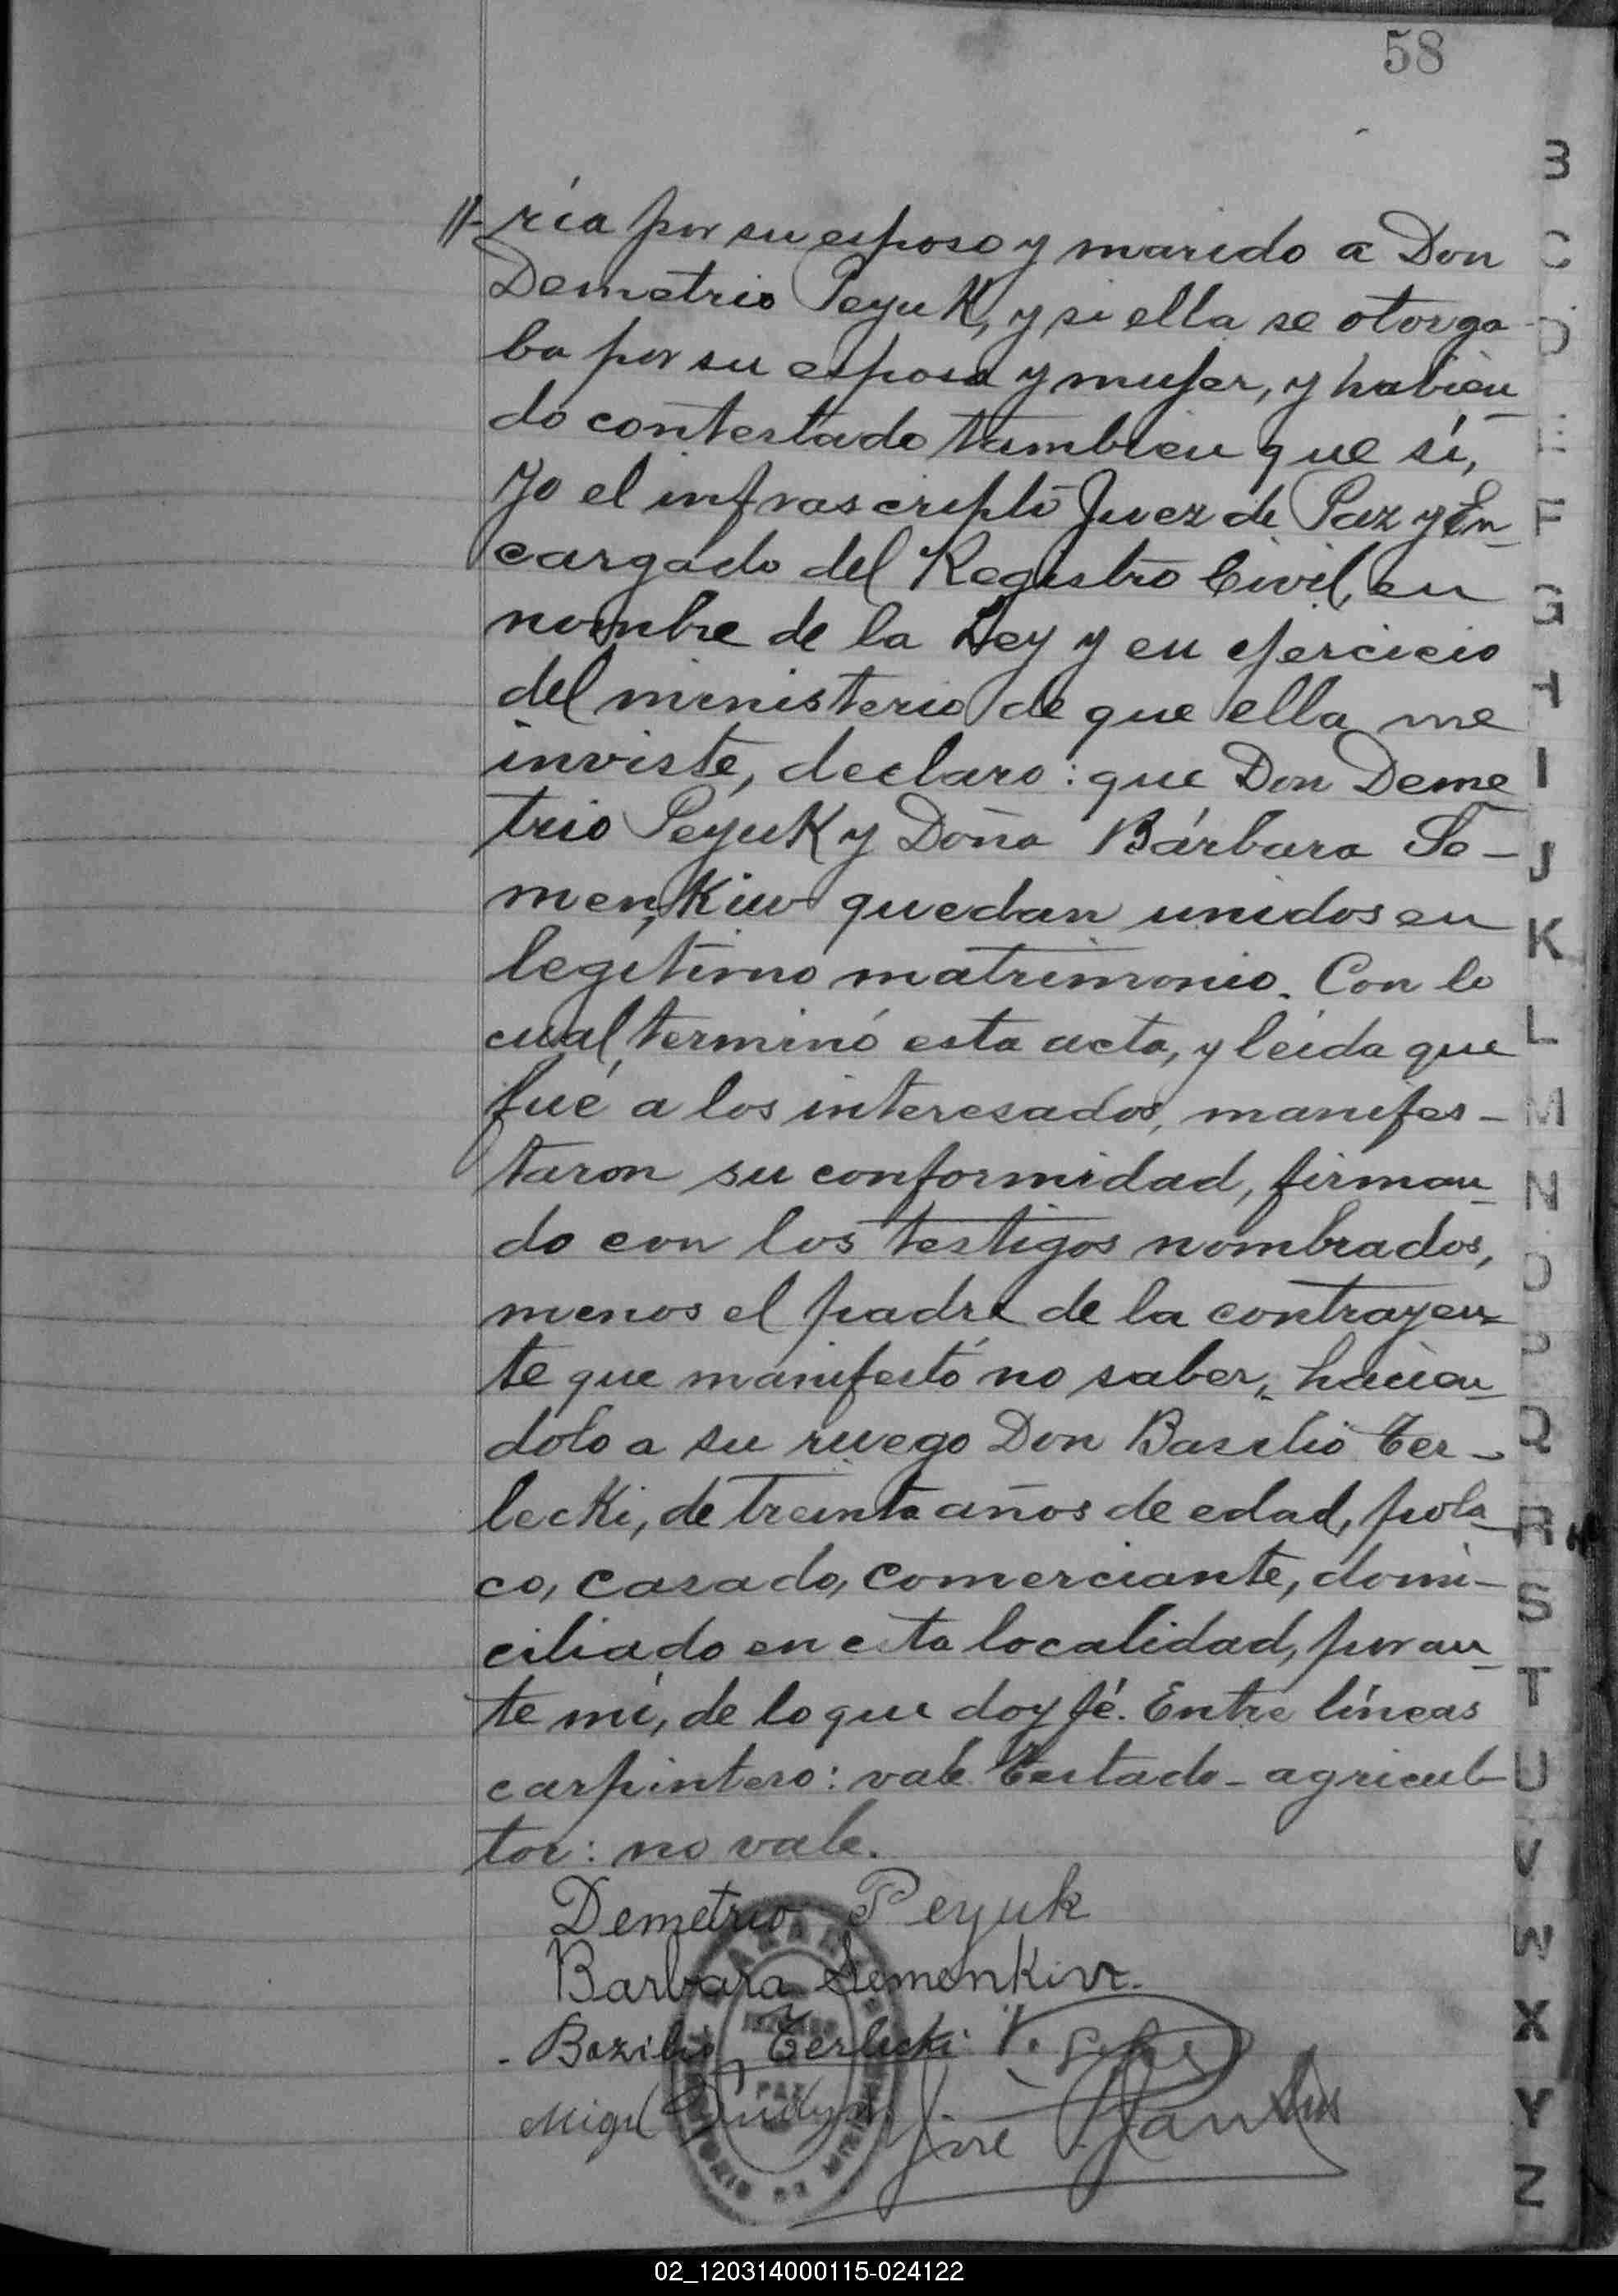 58
//-ría por su esposo y marido a Don
Demetrio Peyuk, y si ella se otorga
ba por su esposa y mujer, y habien
do contestado tambien que sí,
Yo el infrascripto Juez de Paz y En-
cargado del Registro Civil, en
nombre de la Ley y en ejercicio
del ministerio de que ella me
inviste, declaro: que Don Deme
trio Peyuk y Doña Bárbara Se-
menkiw quedan unidos en
legítimo matrimonio. Con lo
cual, terminó esta acta, y leída que
fué a los interesados, manifes-
taron su conformidad, firman-
do con los testigos nombrados,
menos el padre de la contrayen-
te que manifestó no saber, hacien-
dolo a su ruego Don Basilio Ter-
lecki, de treinta años de edad, pola-
co, casado, comerciante, domi-
ciliado en esta localidad, por an-
te mí, de lo que doy fé. Entre líneas
carpintero: vale. Testado - agricul-
tor: no vale.
Demetrio Peyuk
Barbara Semenkiw.
Bazilio Terlecki
Migel
José
B
C
D
E
F
G
H
I
J
K
L
M
N
O
P
Q
R
S
T
U
V
W
X
Y
Z
02_120314000115-024122